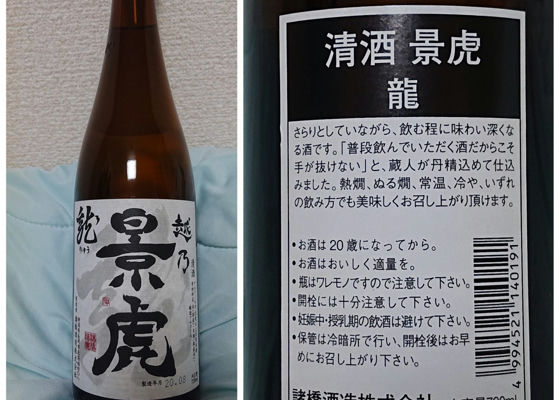 越乃
景虎
龍
りゅう
清酒
製造年月 20.08
清酒 景虎
龍
さらりとしていながら、飲む程に味わい深くな
る酒です。「普段飲んでいただく酒だからこそ
手が抜けない」と、蔵人が丹精込めて仕込
みました。熱燗、ぬる燗、常温、冷や、いずれ
の飲み方でも美味しくお召し上がり頂けます。
•お酒は20歳になってから。
•お酒はおいしく適量を。
•瓶はワレモノですので注意して下さい。
•開栓には十分注意して下さい。
•妊娠中・授乳期の飲酒は避けて下さい。
•保管は冷暗所で行い、開栓後はお早
めにお召し上がり下さい。
4 994521 140191
諸橋酒造株式会社